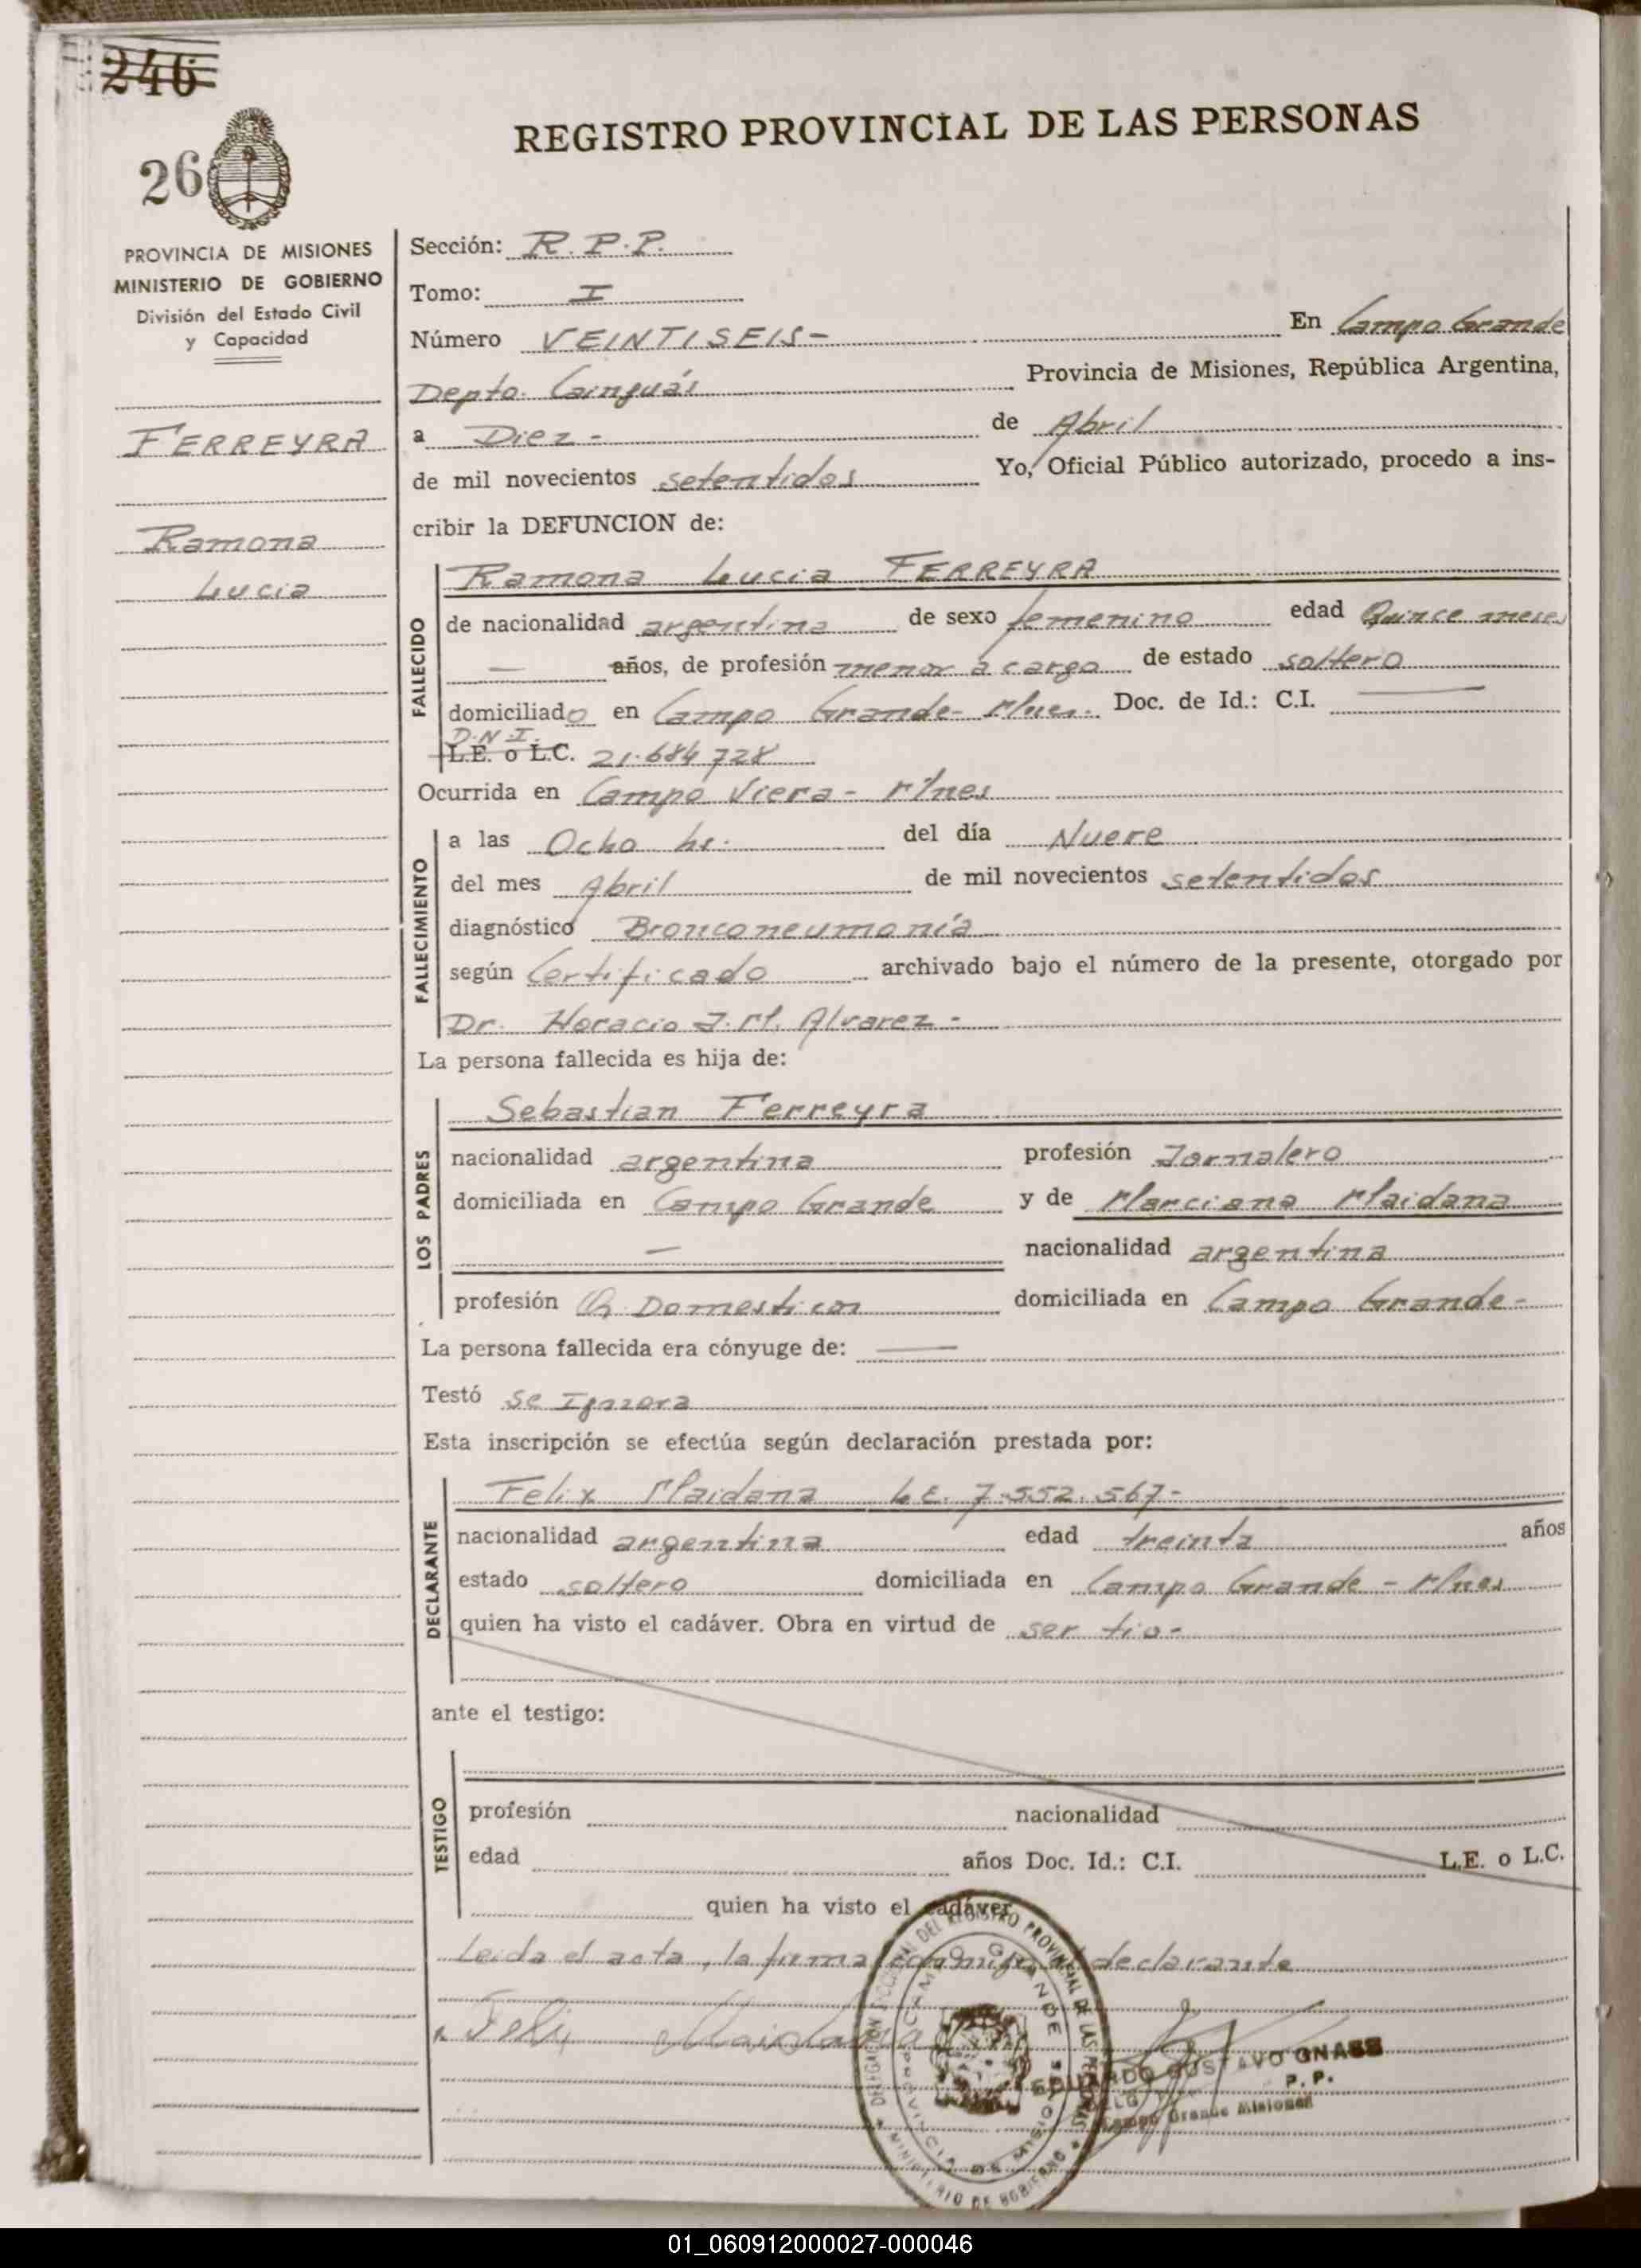 246
26
REGISTRO PROVINCIAL DE LAS PERSONAS
PROVINCIA DE MISIONES
MINISTERIO DE GOBIERNO
División del Estado Civil
y Capacidad
FERREYRA
Ramona
Lucia
Sección: R.P.P.
Tomo: I
Número VEINTISEIS- En Campo Grande
Depto. Cainguás Provincia de Misiones, República Argentina,
a Diez- de Abril
de mil novecientos setentidos Yo, Oficial Público autorizado, procedo a ins-
cribir la DEFUNCION de:
FALLECIDO
Ramona Lucia FERREYRA
de nacionalidad argentina de sexo femenino edad Quince meses
— años, de profesión menor a cargo de estado soltero
domiciliado en Campo Grande- Mnes. Doc. de Id.: C.I. —
D.N.I.
L.E. o L.C. 21.684.728
Ocurrida en Campo Viera- M/nes
FALLECIMIENTO
a las Ocho hs. del día Nueve
del mes Abril de mil novecientos setentidos
diagnóstico Bronconeumonía
según Certificado archivado bajo el número de la presente, otorgado por
Dr. Horacio J. M. Alvarez-
La persona fallecida es hija de:
LOS PADRES
Sebastian Ferreyra
nacionalidad argentina profesión Jornalero
domiciliada en Campo Grande y de Marciana Maidana
— nacionalidad argentina
profesión Q. Domesticos domiciliada en Campo Grande-
La persona fallecida era cónyuge de: —
Testó se Ignora
Esta inscripción se efectúa según declaración prestada por:
DECLARANTE
Felix Maidana L.E. 7.552.567-
nacionalidad argentina edad treinta años
estado soltero domiciliada en Campo Grande - M/nes
quien ha visto el cadáver. Obra en virtud de ser tio-
ante el testigo:
TESTIGO
profesión nacionalidad
edad años Doc. Id.: C.I. L.E. o L.C.
quien ha visto el cadáver
Leida el acta, la firma conmigo el declarante
Felix Maidana
DELEGACION SECCIONAL DEL REGISTRO PROVINCIAL DE LAS PERSONAS
CAMPO GRANDE
PROVINCIA DE MISIONES
MINISTERIO DE GOBIERNO
EDUARDO GUSTAVO GNASS
P. P.
Campo Grande Misiones
01_060912000027-000046